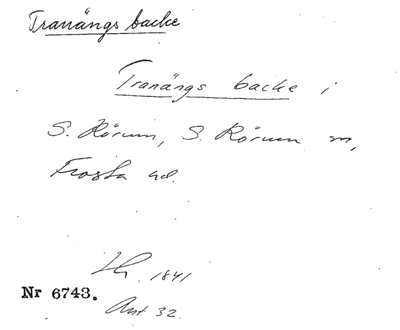 Tranängs backe
Tranängs backe i
S. Rörum, S. Rörum sn,
Frosta hd.
Lh. 1841
Nr 6743.
Ant 32.